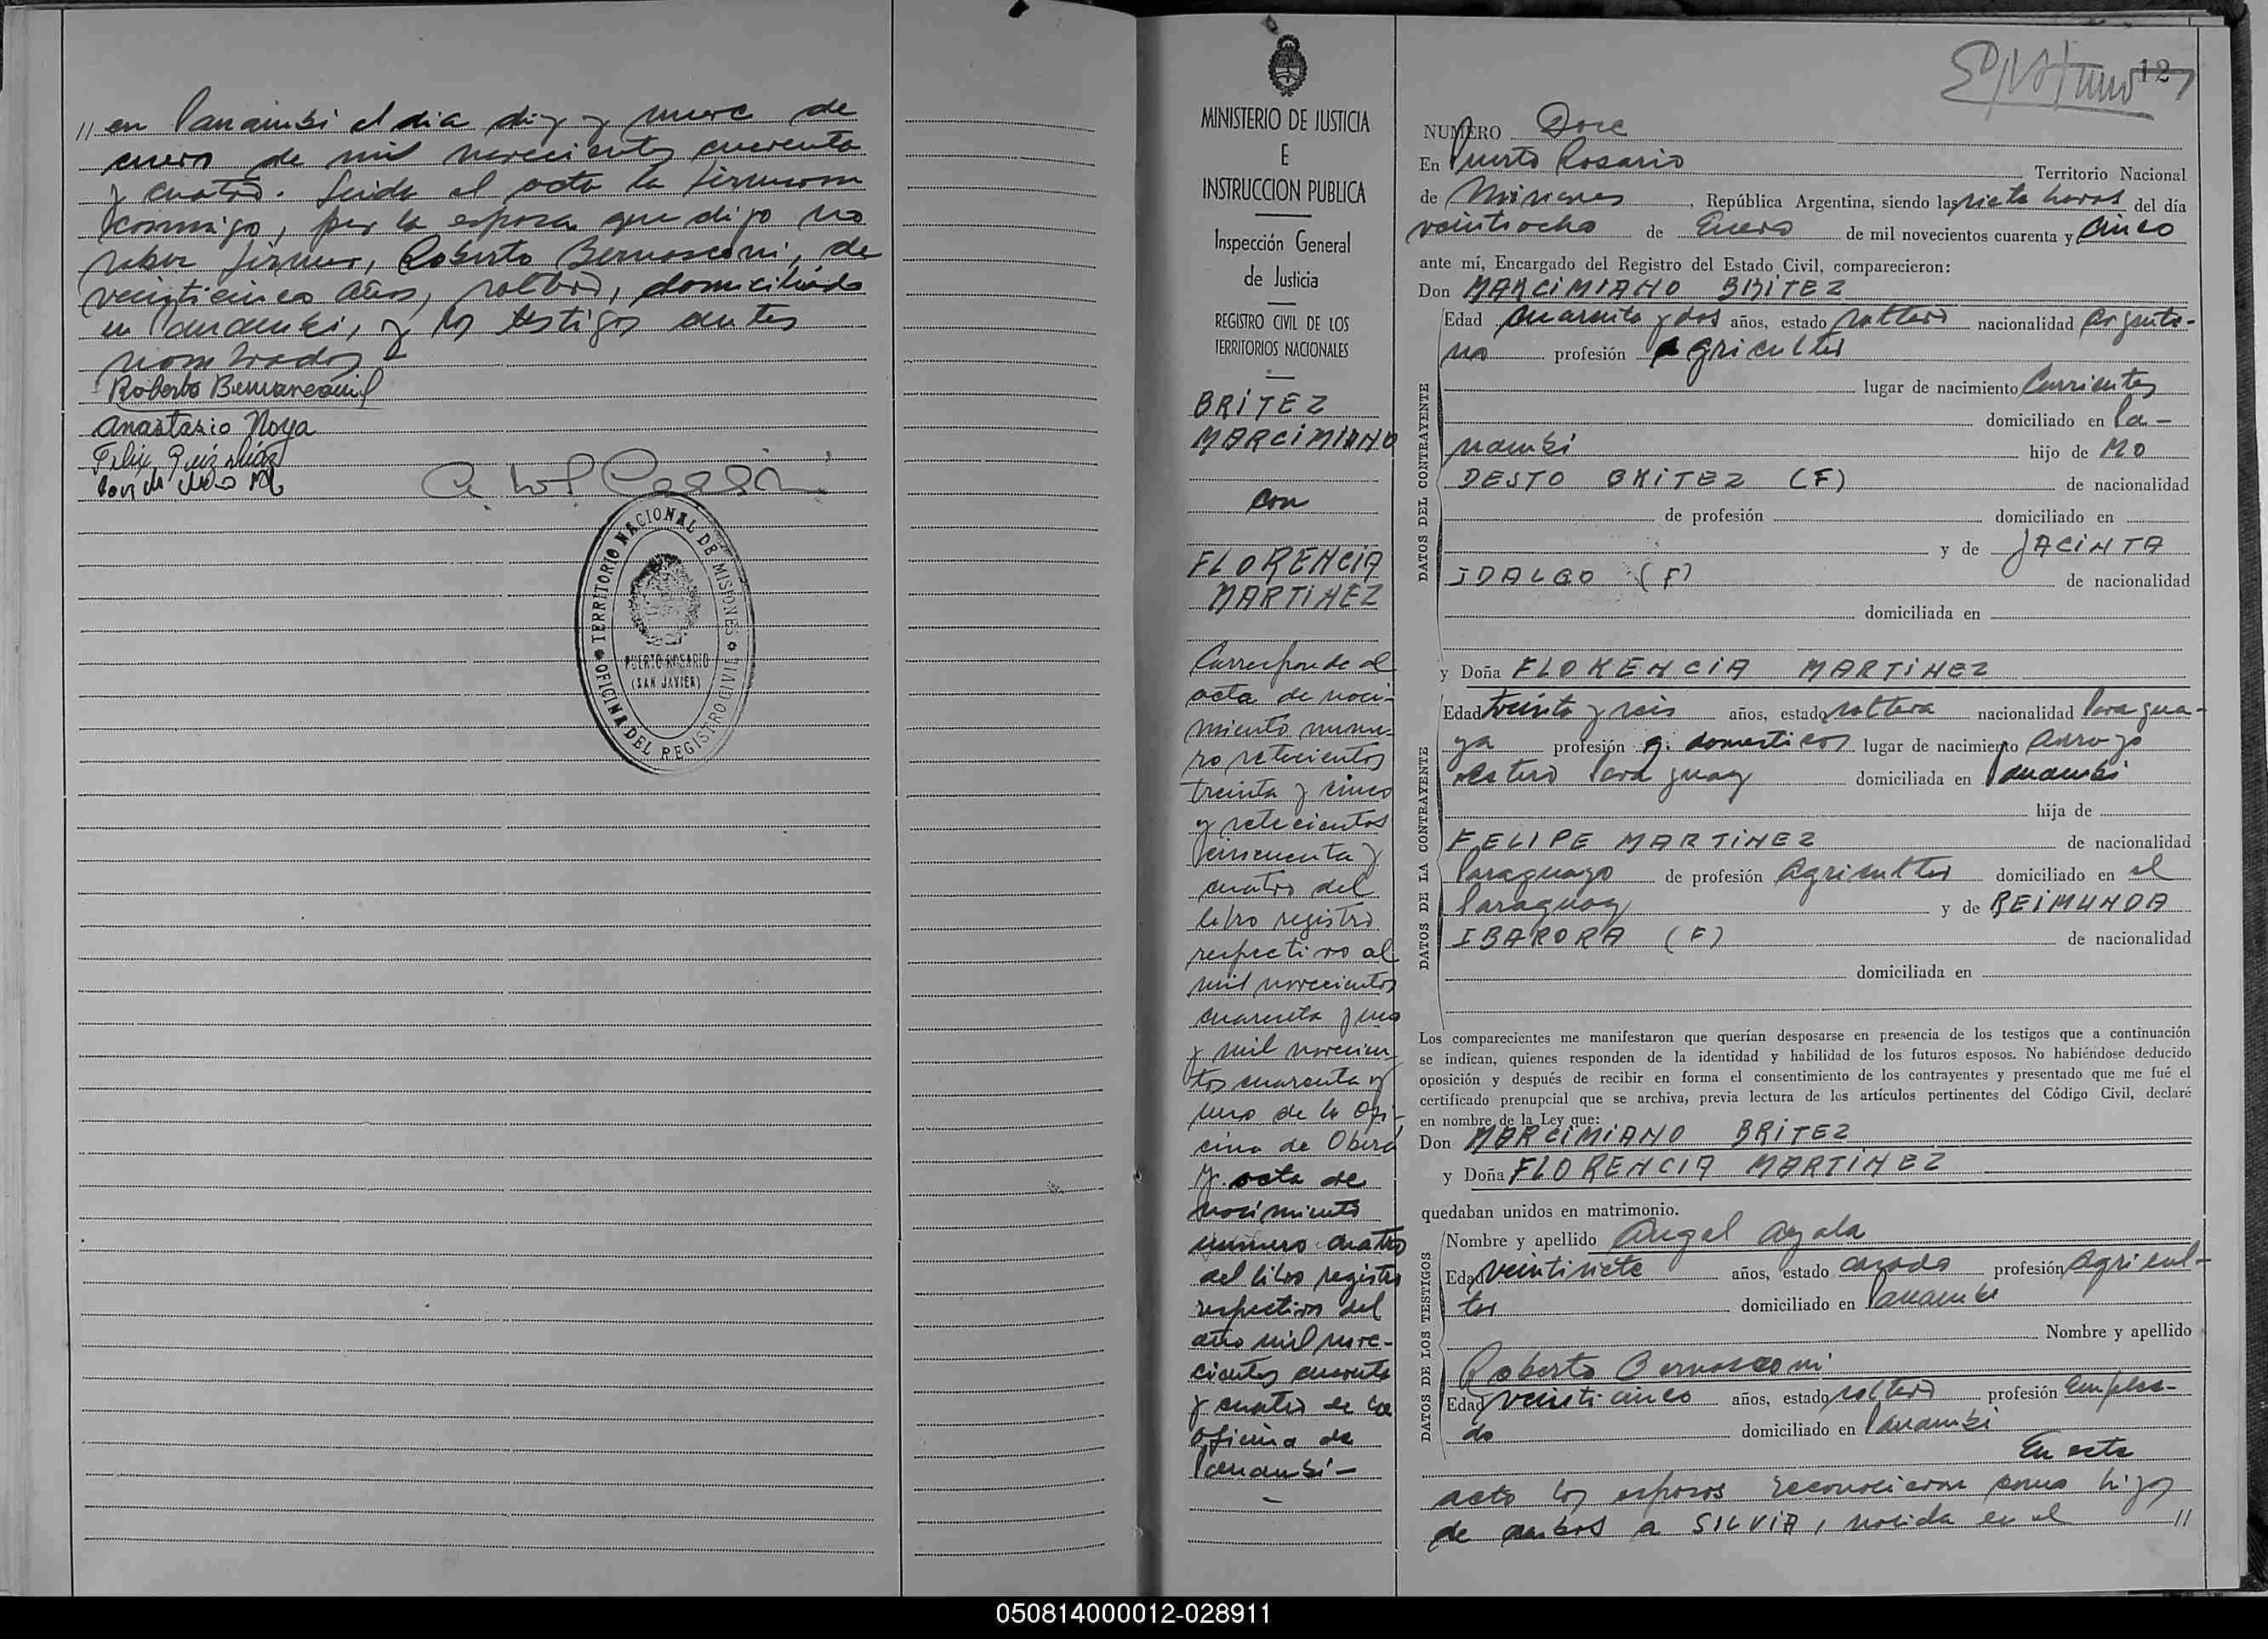 // en Panambi el dia diez y nueve de
enero de mil novecientos cuarenta
y cuatro. Leida el acta la firmaron
conmigo, por la esposa que dijo no
saber firmar, Roberto Bernasconi, de
veinticinco años, soltero, domiciliado
en Panambi, y los testigos antes
nombrados
Roberto Bernasconi
Anastasio Noya
Felix
OFICINA DEL REGISTRO CIVIL * TERRITORIO NACIONAL DE MISIONES *
PUERTO ROSARIO
(SAN JAVIER)
MINISTERIO DE JUSTICIA
E
INSTRUCCION PUBLICA
Inspección General
de Justicia
REGISTRO CIVIL DE LOS
TERRITORIOS NACIONALES
BRITEZ
MARCIMIANO
con
FLORENCIA
MARTINEZ
Corresponde al
acta de naci-
miento nume-
ro setecientos
treinta y cinco
y setecientos
cincuenta y
cuatro del
libro registro
respectivo al
mil novecientos
cuarenta y uno
y mil novecien
tos cuarenta y
uno de la Ofi-
cina de Oberá
y acta de
nacimiento
numero cuatro
del libro registro
respectivo del
año mil nove-
cientos cuarenta
y cuatro de la
oficina de
Panambi -
12
NUMERO Doce
En Puerto Rosario Territorio Nacional
de Misiones, República Argentina, siendo las siete horas del día
veintiocho de Enero de mil novecientos cuarenta y cinco
ante mí, Encargado del Registro del Estado Civil, comparecieron:
Don MARCIMIANO BRITEZ
DATOS DEL CONTRAYENTE
Edad cuarenta y dos años, estado soltero nacionalidad Argenti-
no profesión Agricultor
lugar de nacimiento Corrientes
domiciliado en Pa-
nambi hijo de MO
DESTO BRITEZ (F) de nacionalidad
de profesión domiciliado en
y de JACINTA
IDALGO (F) de nacionalidad
domiciliada en
y Doña FLORENCIA MARTINEZ
DATOS DE LA CONTRAYENTE
Edad treinta y seis años, estado soltera nacionalidad Paragua-
ya profesión q. domesticos lugar de nacimiento Arroyo
estero Paraguay domiciliada en Panambi
hija de
FELIPE MARTINEZ de nacionalidad
Paraguayo de profesión Agricultor domiciliado en el
Paraguay y de REIMUNDA
IBARORA (F) de nacionalidad
domiciliada en
Los comparecientes me manifestaron que querían desposarse en presencia de los testigos que a continuación
se indican, quienes responden de la identidad y habilidad de los futuros esposos. No habiéndose deducido
oposición y después de recibir en forma el consentimiento de los contrayentes y presentado que me fué el
certificado prenupcial que se archiva, previa lectura de los artículos pertinentes del Código Civil, declaré
en nombre de la Ley que:
Don MARCIMIANO BRITEZ
y Doña FLORENCIA MARTINEZ
quedaban unidos en matrimonio.
DATOS DE LOS TESTIGOS
Nombre y apellido Angel Ayala
Edad veintisiete años, estado casado profesión Agricul-
tor domiciliado en Panambi
Nombre y apellido
Roberto Bernasconi
Edad veinticinco años, estado soltero profesión Emplea-
do domiciliado en Panambi
En este
acto los esposos reconocieron como hijos
de ambos a SILVIA, nacida en el //
050814000012-028911